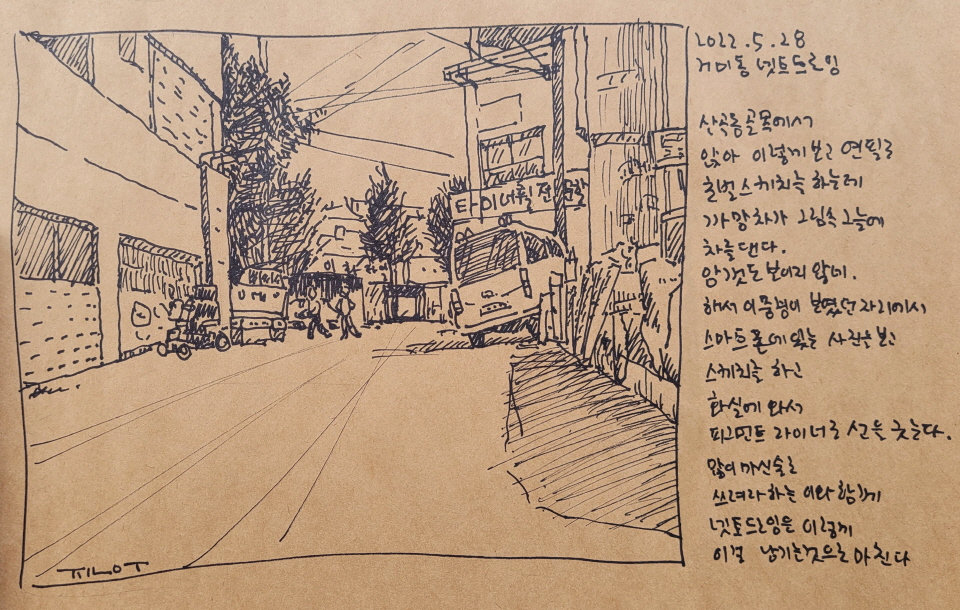 2022.5.28
거미동 넛트드로잉
산곡동골목에서
앉아 이렇게 보고 연필로
초벌스케치를 하는데
까망차가 그림속 그늘에
차를 댄다.
암것도 보이지 않네.
해서 이풍경이 보였던 자리에서
스마트폰에 있는 사진을 보고
스케치를 하고
화실에 와서
피그먼트 라이너로 선을 긋는다.
많이 마신술로
쓰려라하는 이와 함께
넛트드로잉을 이렇게
이걸 남기는것으로 마친다
타이어휠전문점
TILOT